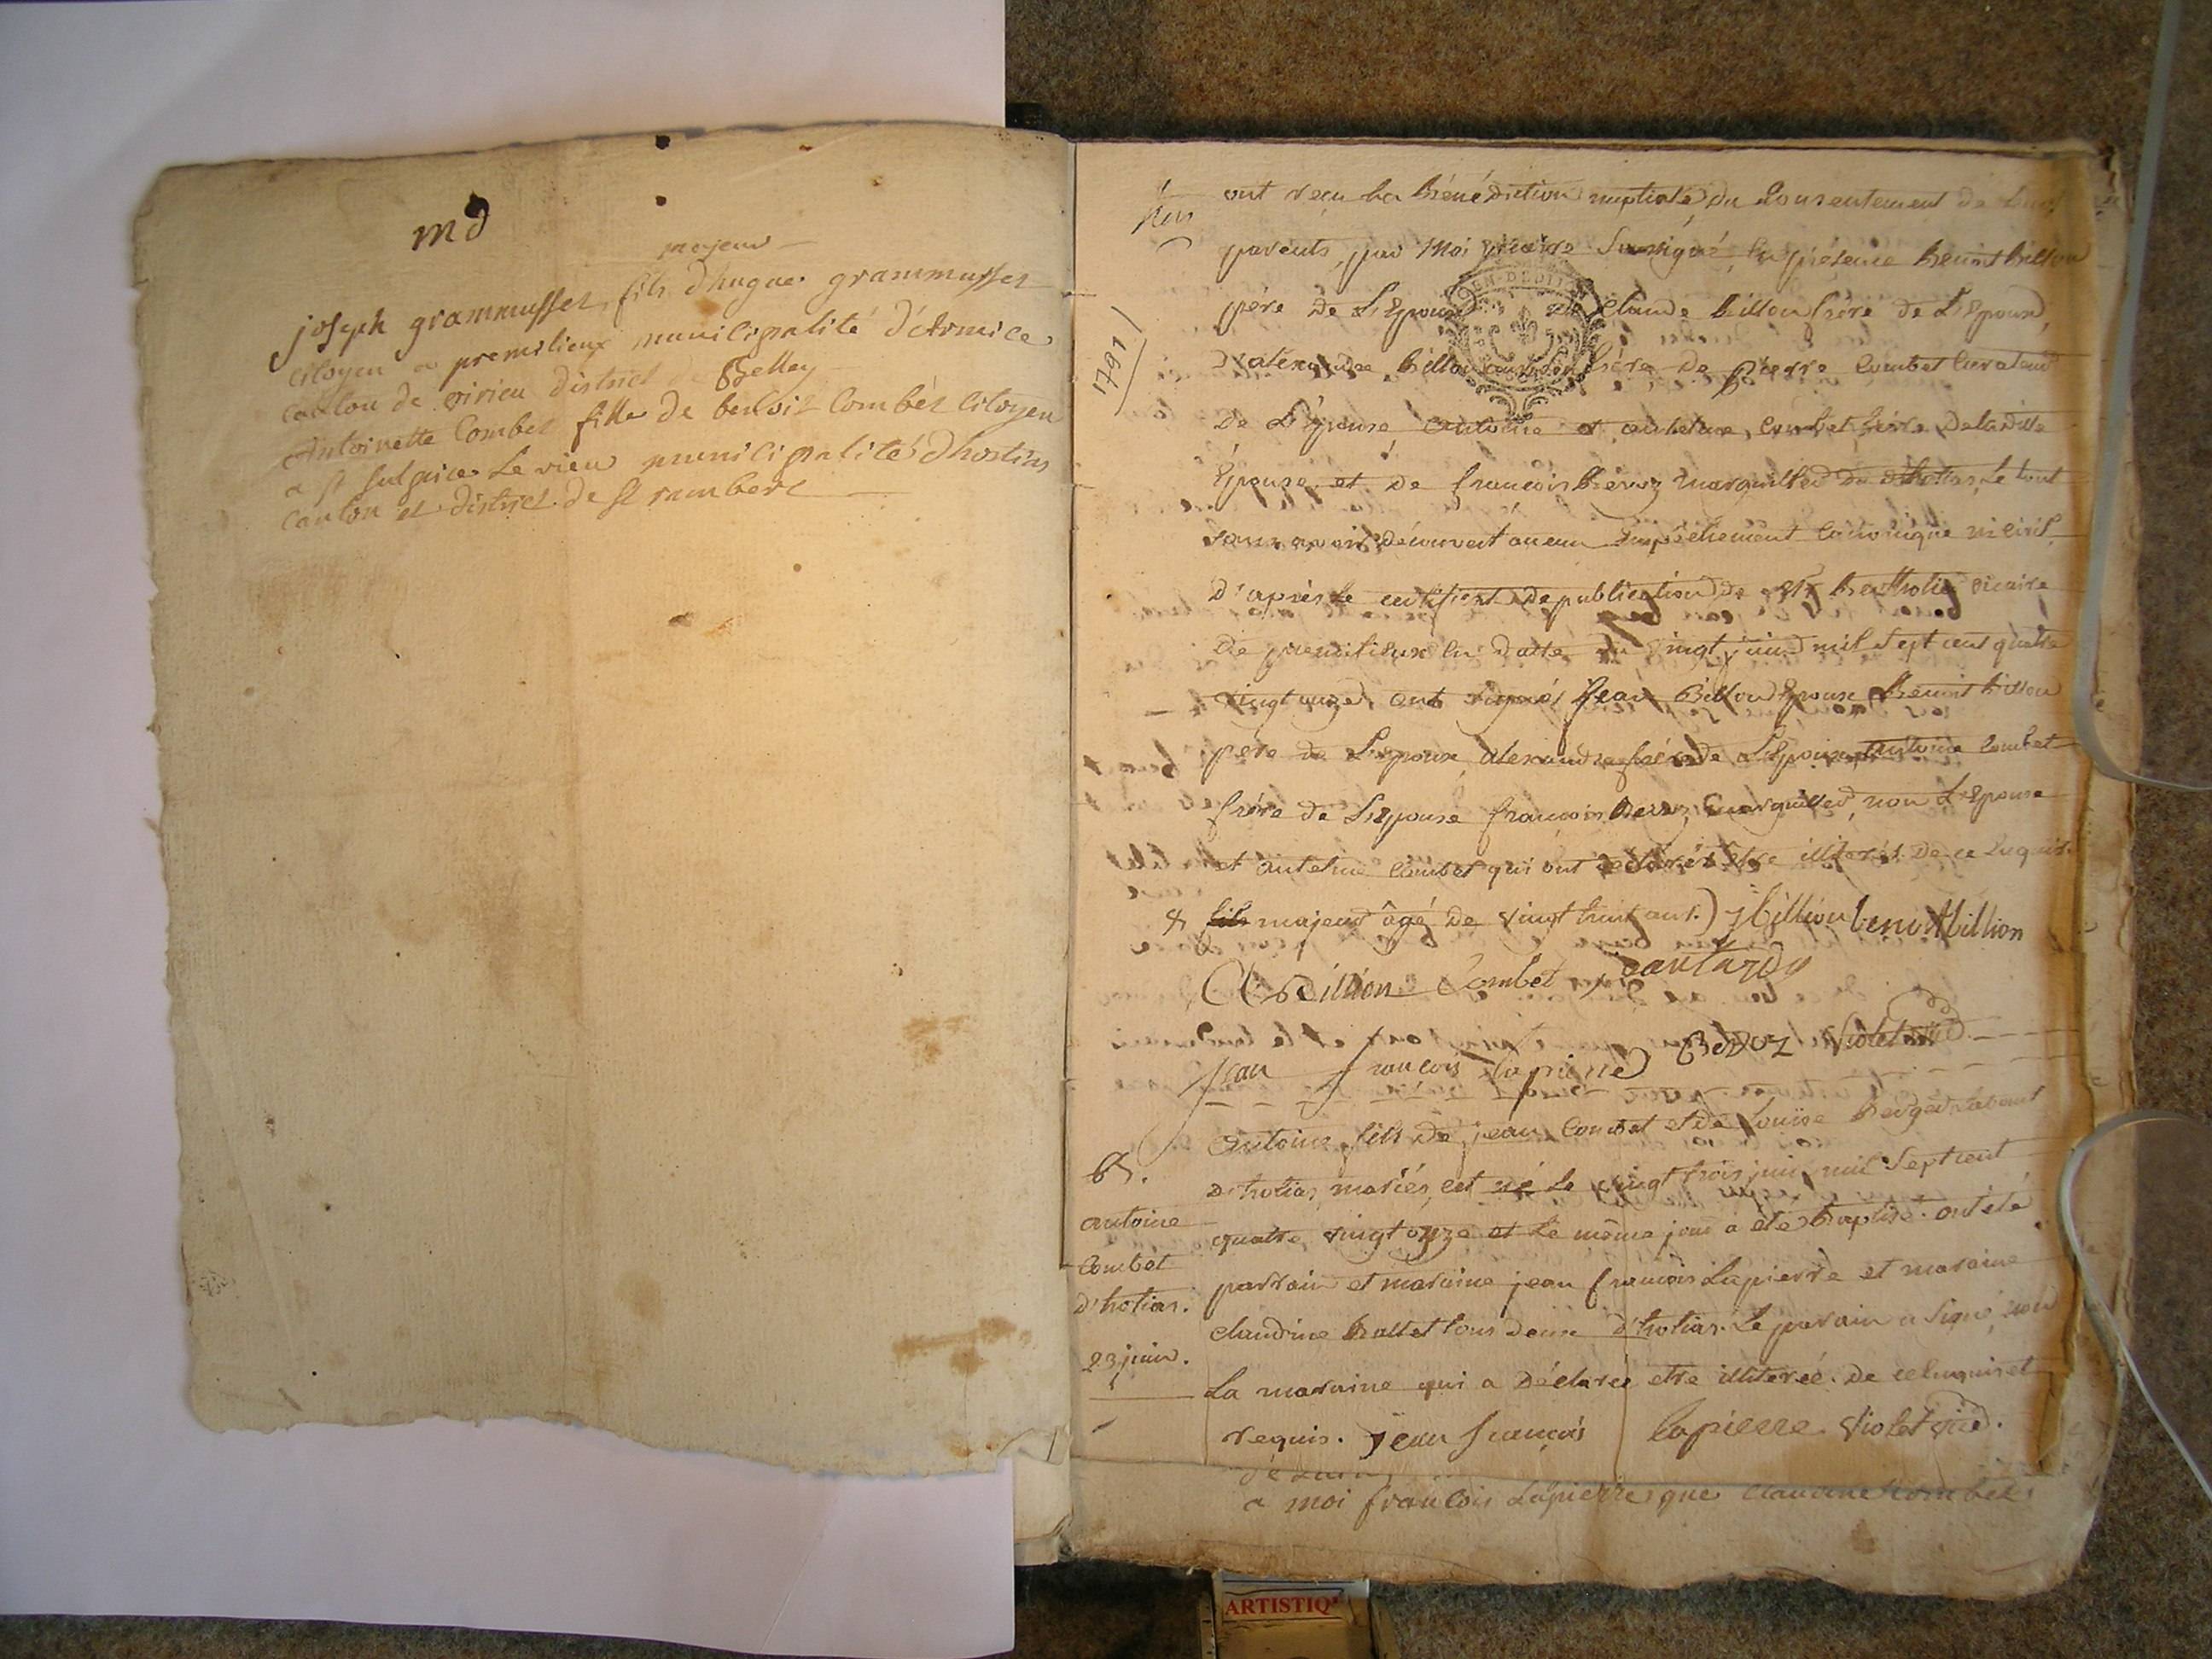 md
majeur
joseph grammusset fils d'hugue grammusset
citoyen a premilieux municipalité d'Armice
canton de virieu district de Belley
Antoinette Combet fille de benoit Combet citoyen
a st sulpice le vieu municipalité d'hostias
canton et district de st rambert
ont reçu la bénédiction nuptiale du consentement de leurs
parents, par moi vicaire soussigné, en présence benoit billion
père de l'Epoux, de claude billon frère de l'Epoux,
d'alexandre billon frère de pierre Combet curateur
de l'épouse antoine et antelme Combet frère de la ditte
Epouse et de françois bévoz marguillier d'hotias, le tout
sans avoir découvert aucun Empêchement canonique ni civil
d'après le certificat de publication de Mr bertholier vicaire
de premilieux en datte du vingt juin mil sept cent quatre
vingt onze ont signés jean Billon Epoux Benoit billon
père de l'Epoux, alexandre frère de l'Epoux, antoine Combet
frère de l'Epouse françois marguillier, non l'Epouse
et antelme Combet qui ont declarés etre illiterés de ce enquis
majeur âgé de vingt huit ans.) j billion benoit billion
A Billion Combet
jean françois lapierre Violet
1791
B.
antoine
Combet
d'hotias.
23 juin.
Antoine fils de jean Combet et de Louise
d'hotias mariés, est né le vingt trois juin mil sept cent
quatre vingt onze et le même jour a été baptisé. ont été
parrain et maraine jean françois Lapierre et maraine
claudine ballet tous deux d'hotias. Le parrain a signé, non
La maraine qui a déclaré etre illiterée. de ce enquis et
requis. jean francois lapierre Violet vic.
a moi francois Lapierre que claudine Combet
ARTISTIQ